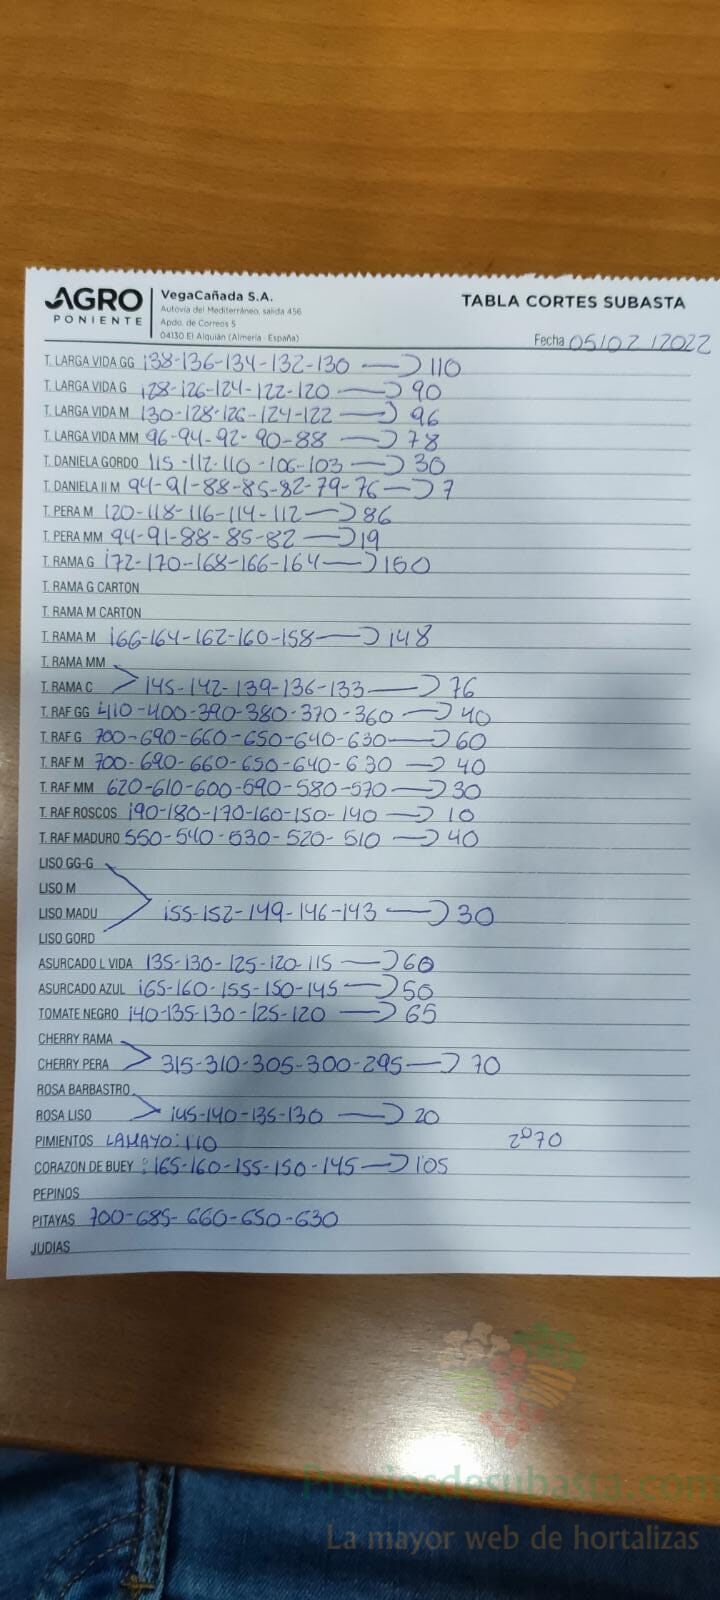 AGRO
PONIENTE
VegaCañada S.A.
Autovia del Mediterráneo, salida 456
Apdo. de Correos 5
04130 El Alquián (Almería - España)
TABLA CORTES SUBASTA
Fecha 05/02/2022
T. LARGA VIDA GG 138-136-134-132-130 → 110
T. LARGA VIDA G 128-126-124-122-120 → 90
T. LARGA VIDA M 130-128-126-124-122 → 96
T. LARGA VIDA MM 96-94-92-90-88 → 78
T. DANIELA GORDO 115-112-110-106-103 → 30
T. DANIELA II M 94-91-88-85-82-79-76 → 7
T. PERA M 120-118-116-114-112 → 86
T. PERA MM 94-91-88-85-82 → 19
T. RAMA G 172-170-168-166-164 → 150
T. RAMA G CARTON
T. RAMA M CARTON
T. RAMA M 166-164-162-160-158 → 148
T. RAMA MM
T. RAMA C 145-142-139-136-133 → 76
T. RAF GG 410-400-390-380-370-360 → 40
T. RAF G 700-690-660-650-640-630 → 60
T. RAF M 700-690-660-650-640-630 → 40
T. RAF MM 620-610-600-590-580-570 → 30
T. RAF ROSCOS 190-180-170-160-150-140 → 10
T. RAF MADURO 550-540-530-520-510 → 40
LISO GG-G
LISO M
LISO MADU 155-152-149-146-143 → 30
LISO GORD
ASURCADO L VIDA 135-130-125-120-115 → 60
ASURCADO AZUL 165-160-155-150-145 → 50
TOMATE NEGRO 140-135-130-125-120 → 65
CHERRY RAMA
CHERRY PERA 315-310-305-300-295 → 70
ROSA BARBASTRO
ROSA LISO 145-140-135-130 → 20
PIMIENTOS LAMAYO: 110 2º70
CORAZON DE BUEY : 165-160-155-150-145 → 105
PEPINOS
PITAYAS 700-685-660-650-630
JUDIAS
Preciosdesubasta.com
La mayor web de hortalizas